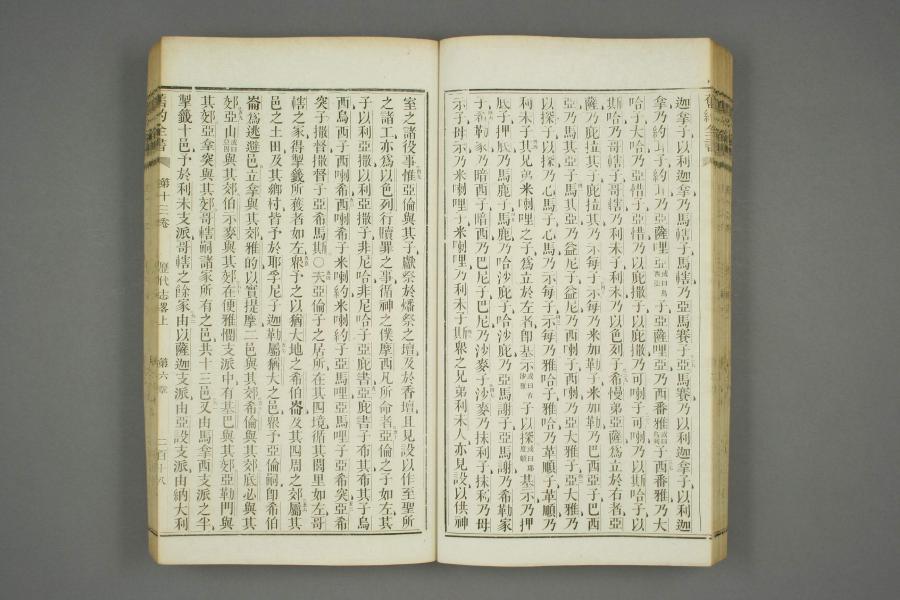 迦拿子以利迦拿乃馬轄子馬轄乃亞馬賽子亞馬賽乃以利迦拿子以利迦
拿乃約珥子約珥乃亞薩哩亞子亞薩哩亞乃西番雅子西番雅乃大
哈子大哈乃亞惜子亞惜乃以庇撒子以庇撒乃可喇子可喇乃以斯哈子以
斯哈乃哥轄子哥轄乃利未子利未乃以色列子希慢弟亞薩為立於右者亞
薩乃庇拉其子庇拉其乃示每子示每乃米加勒子米加勒乃巴西亞子巴西
亞乃馬其亞子馬其亞乃益尼子益尼乃西喇子西喇乃亞大雅子亞大雅乃
以探子以探乃心馬子心馬乃示每子示每乃雅哈子雅哈乃革順子革順乃
利未子其兄弟米喇哩之子為立於左者即基示子以探基示乃押
底子押底乃馬鹿子馬鹿乃哈沙庇子哈沙庇乃亞馬謝子亞馬謝乃希勒家
子希勒家乃暗西子暗西乃巴尼子巴尼乃沙麥子沙麥乃抹利子抹利乃母
示子母示乃米喇哩子米喇哩乃利未子斯眾之兄弟利未人亦見設以供神
室之諸役事惟亞倫與其子獻祭於燔祭之壇及於香壇且見設以作至聖所
之諸工亦為以色列行贖罪之事循神之僕摩西凡所命者亞倫之子如左其
子以利亞撒以利亞撒子非尼哈非尼哈子亞庇書亞庇書子布其布其子烏
西烏西子西喇希西喇希子米喇約米喇約子亞馬哩亞馬哩子亞希突亞希
突子撒督撒督子亞希馬斯〇夫亞倫子之居所在其四境循其閭里如左哥
轄之家得掣籤所獲者如左眾予之以猶大地之希伯崙及其四周之郊屬其
邑之土田及其鄉村皆予於耶孚尼子迦勒屬猶大之邑眾予亞倫嗣即希伯
崙為逃避邑立拿與其郊雅的以實提摩二邑與其郊希倫與其郊底必與其
郊亞山與其郊伯示麥與其郊在便雅憫支派中有基巴與其郊亞勒門與
其郊亞拿突與其郊哥轄嗣諸家所有之邑共十三邑又由馬拿西支派之半
掣籤十邑予於利未支派哥轄之餘家由以薩迦支派由亞設支派由納大利
舊約全書 第十三卷 歷代志畧上 第六章 二百十八